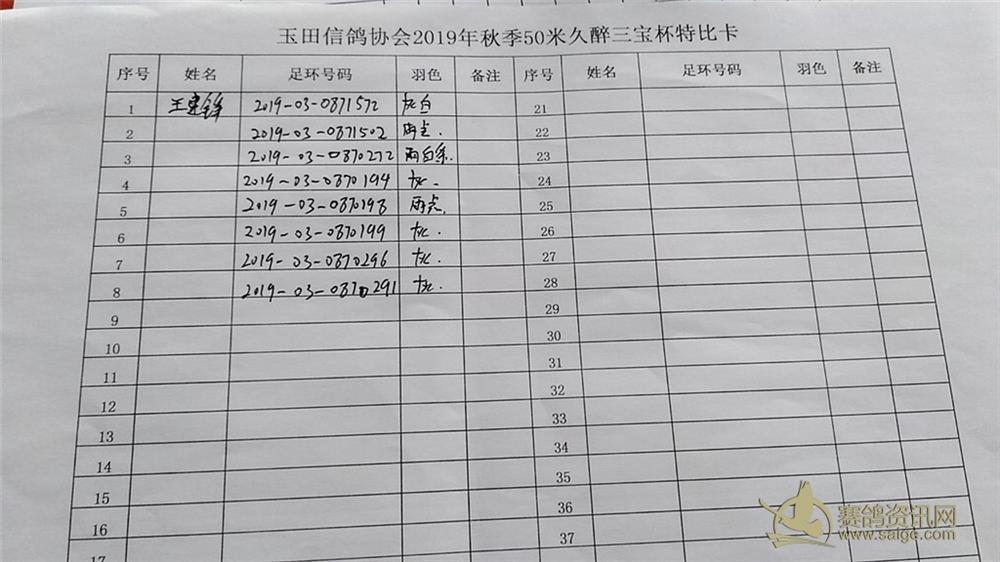 玉田信鸽协会2019年秋季50米久醉三宝杯特比卡
序号 姓名 足环号码 羽色 备注 序号 姓名 足环号码 羽色 备注
1 王建锋 2019-03-0871572 灰白 21
2 2019-03-0871502 雨点. 22
3 2019-03-0870272 雨白条. 23
4 2019-03-0870194 灰. 24
5 2019-03-0870198 雨点. 25
6 2019-03-0870199 灰. 26
7 2019-03-0870296 灰. 27
8 2019-03-0870291 灰. 28
9 29
10 30
11 31
12 32
13 33
14 34
15 35
16 36
17 37
赛鸽资讯网
www.saige.com